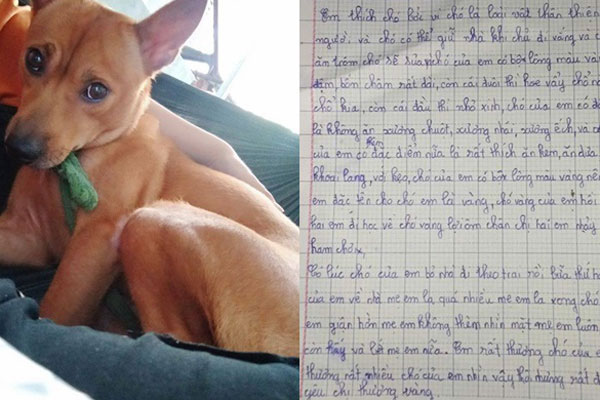 Em thích chó bởi vì chó là loài vật thân thiên
người. và chó có thể giữ nhà khi chủ đi vắng va c
ăn trộm, chó sẽ sủa, chó của em có bộ lông màu va
đậm, bốn chân rất dài, còn cái đuôi thì hoe vẩy
chổ kia, còn cái đầu thì nhỏ xinh, chó của em có đ
là không ăn xương chuột, xương nhái, xương ếch, và c
của em có đặc điểm nữa là rất thích ăn kem, ăn dưa
khoai lang, với kẹo, chó của em có bộ lông màu vàng nên
em đặc tên cho chó em là vàng, chó vàng của em hôi
hai em đi học về chó vàng lại ôm chân chị hai em nhảy
ham chơi,
Có lúc chó của em bỏ nhà đi theo trai rồi bữa thứ ha
của em về nhà mẹ em la, quá nhiều mẹ em la xong chó
em giận hờn mẹ em không thèm nhìn mặt mẹ em luôn
còn và mẹ em nữa. Em rất thương chó của e
thương rất nhiều chó của em nhìn vậy hôi nhưng rất đ
yêu chị thương vàng.